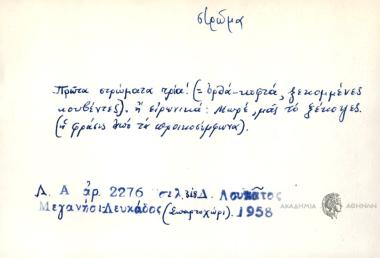 στρῶμα
Πρῶτα στρώματα τρία! (= ὀρθά-κοφτά, ξεκομμένες
κουβέντες). ἢ εἰρωνικά: Μωρέ, μᾶς τὸ ξέκοψες.
(ἡ φράσις ἀπὸ τὰ προικοσύμφωνα).
Λ. Α ἀρ. 2276 σελ. Δ. Λουκᾶτος
Μεγανήσι-Λευκάδος (Σπαρτοχώρι). 1958
ΑΚΑΔΗΜΙΑ ΑΘΗΝΩΝ